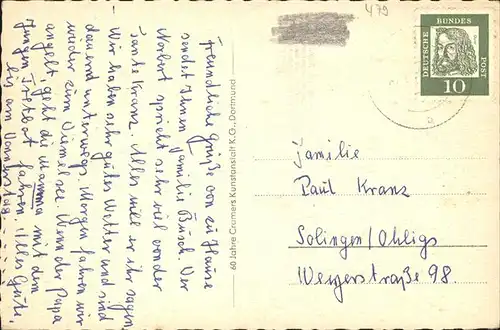 479
freundliche Grüße von zu Hause
sendet Ihnen Familie Busch. Der
Norbert spricht sehr viel von der
Tante Kranz. Alles will er ihr sagen,
Wir haben sehr gutes Wetter und sind
dauernd unterwegs. Morgen fahren wir
wieder zum Diemelsee. Wenn der Papa
angelt geht die Mamma mit dem
Jungen Tretboot fahren. Alles Gute.
bis am Donnerstag.
60 Jahre Cramers Kunstanstalt K.G., Dortmund
DEUTSCHE BUNDES POST
10
Familie
Paul Kranz
Solingen/Ohligs
Weyerstraße 98.